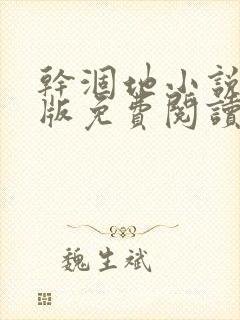 幹涸地小說
版免費閱讀
魏生斌